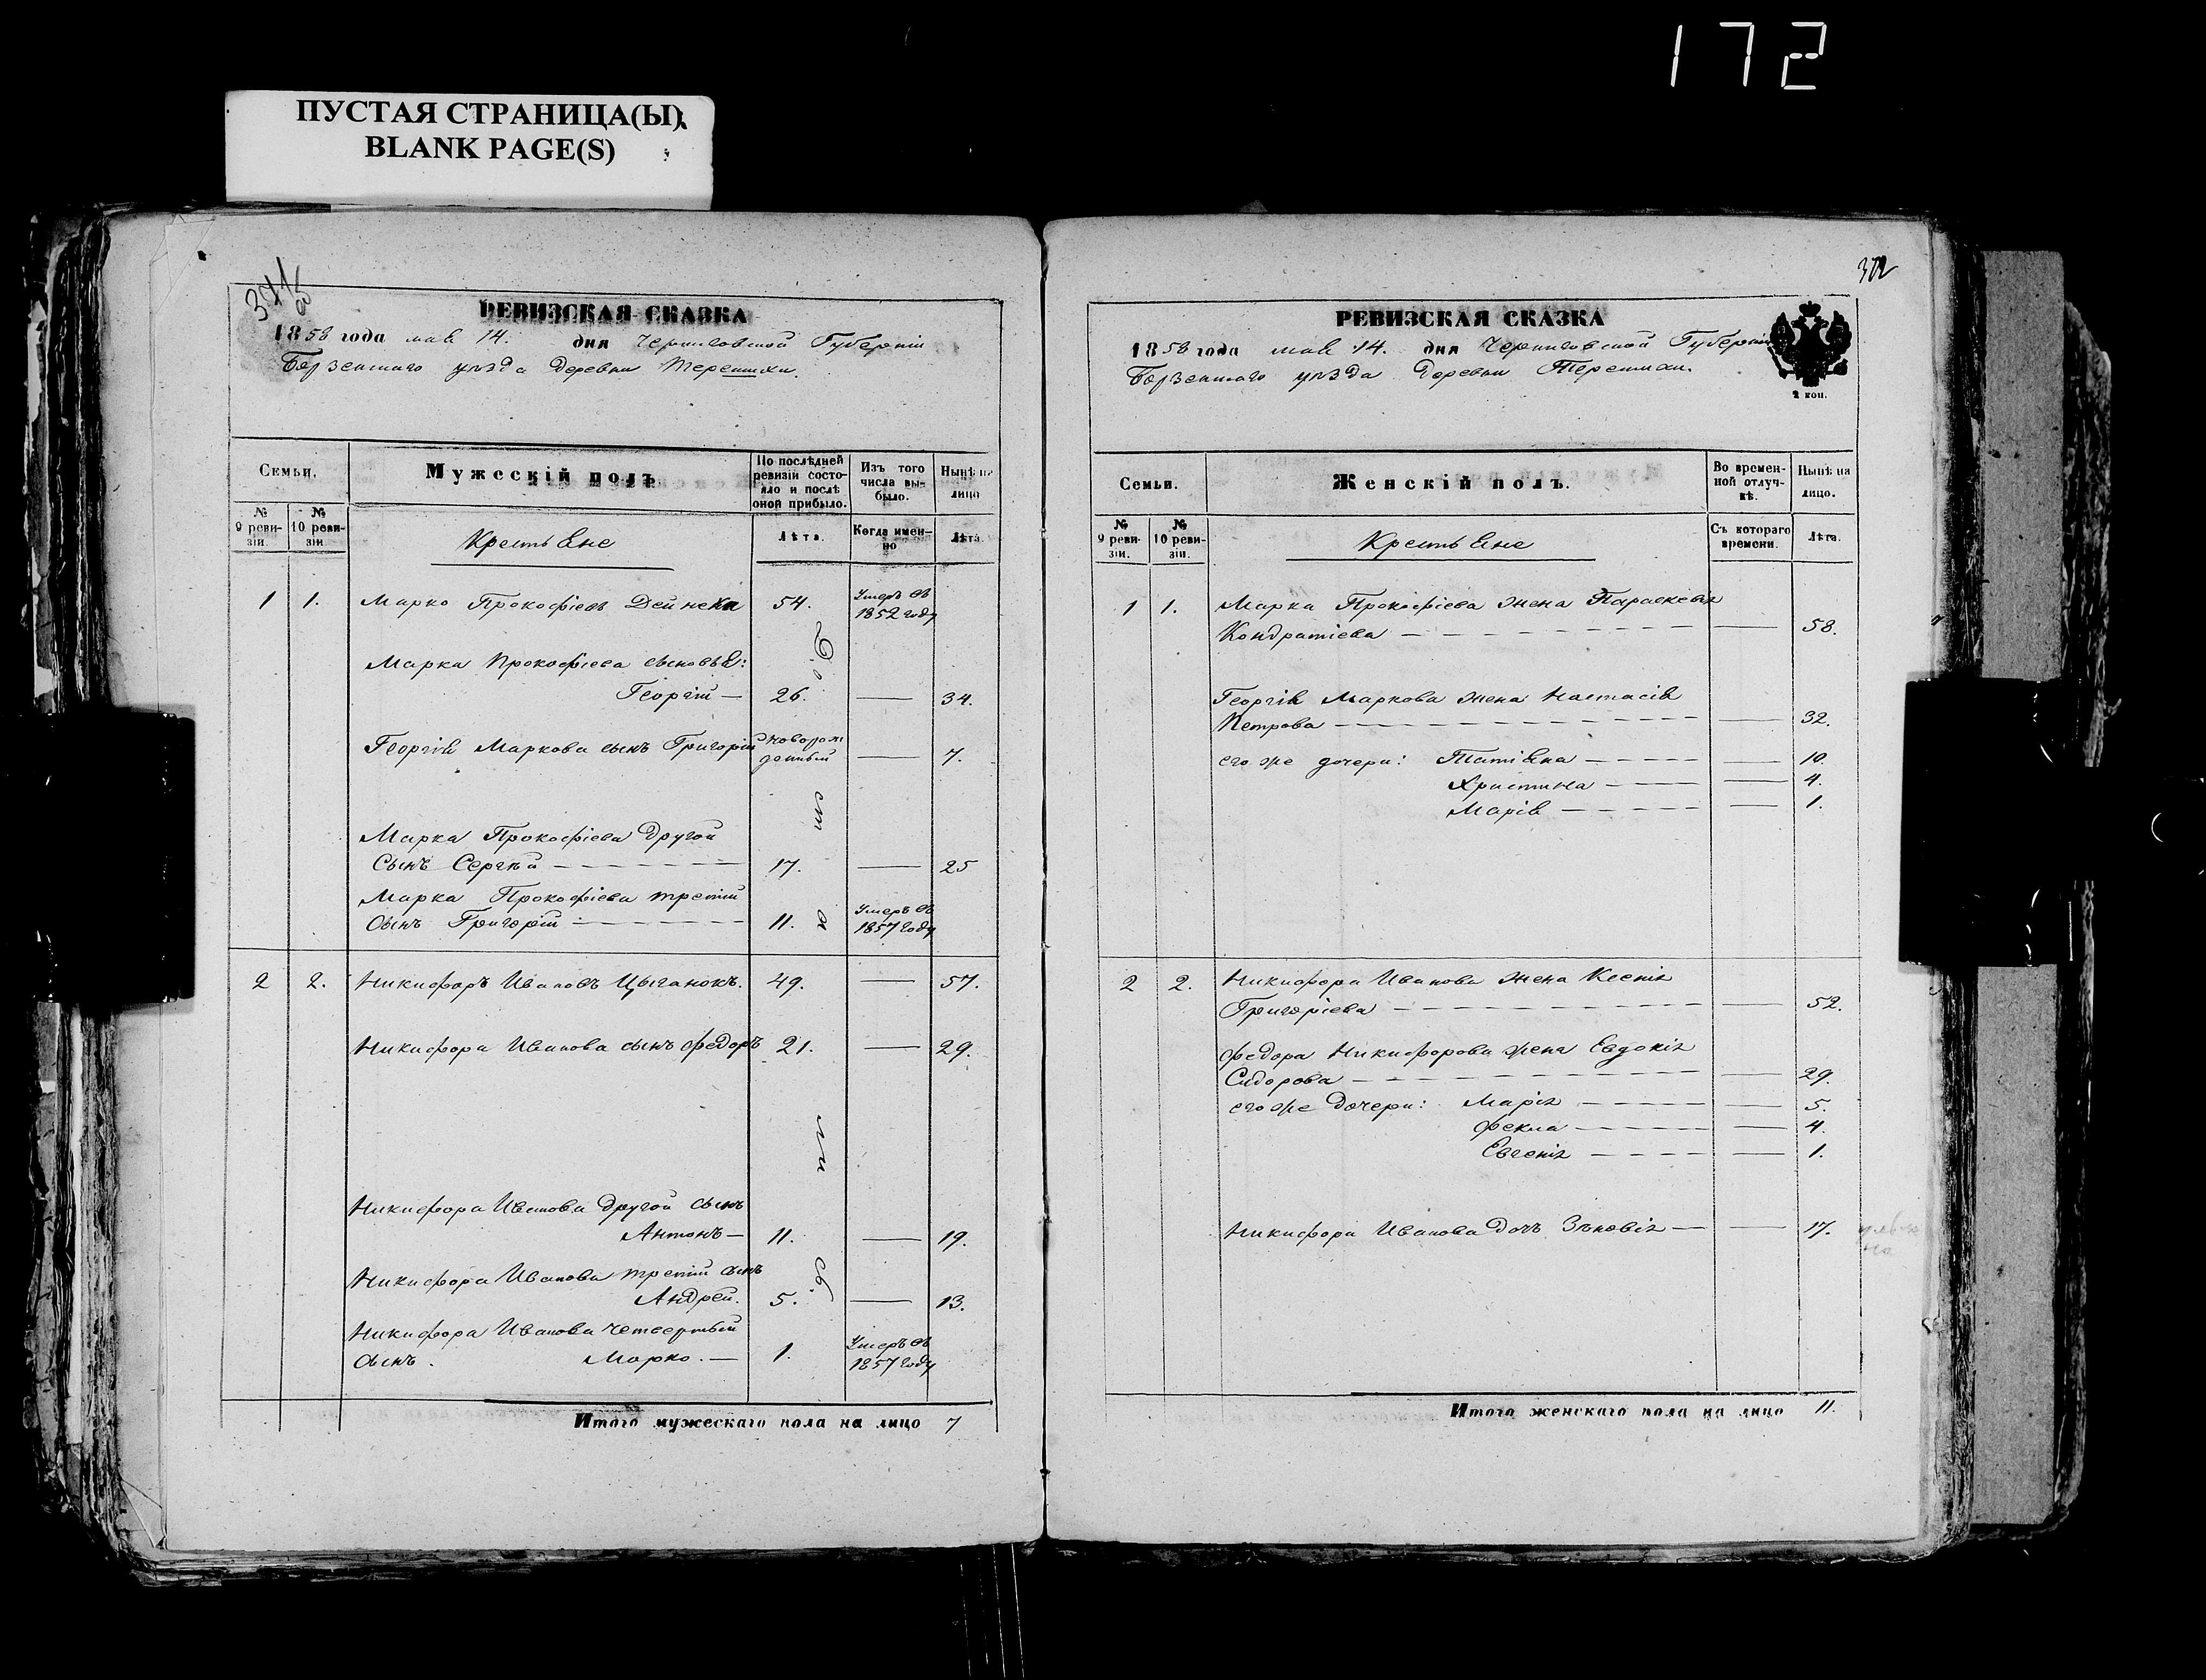 172
ПУСТАЯ СТРАНИЦА(Ы)
BLANK PAGE(S)
РЕВИЗСКАЯ СКАЗКА
1858 года мая 14. дня Черниговской Губерніи
Борзенскаго уѣзда деревни Терешихи.
Семьи.
Мужескій полъ
По послѣдней ревизіи состояло и послѣ оной прибыло.
Изъ того числа выбыло.
Нынѣ на лицо
№ 9 ревизіи.
№ 10 ревизіи
Крестьяне
Лѣта.
Когда именно
Лѣта.
1 1. Марко Прокофіевъ Дейнека 54. Умеръ въ 1852 году
Марка Прокофіева сыновья:
Георгій — 26. — 34.
Георгія Маркова сынъ Григорій новорожденный — 7.
Марка Прокофіева другой
сынъ Сергѣй — 17. — 25
Марка Прокофіева третій
сынъ Григорій — 11. Умеръ въ 1857 году
2 2. Никифоръ Ивановъ Цыганокъ. 49. — 57.
Никифора Иванова сынъ Федоръ 21. — 29.
Никифора Иванова другой сынъ
Антонъ — 11. — 19.
Никифора Иванова третій сынъ
Андрей. 5. — 13.
Никифора Иванова четвертый
сынъ. Марко. — 1. Умеръ въ 1857 году
Итого мужескаго пола на лицо 7
372
РЕВИЗСКАЯ СКАЗКА
1858 года мая 14. дня Черниговской Губерніи
Борзенскаго уѣзда деревни Терешихи.
2 коп.
Семьи.
Женскій полъ.
Во временной отлучкѣ.
Нынѣ на лицо.
№ 9 ревизіи.
№ 10 ревизіи.
Крестьяне
Съ котораго времени.
Лѣта.
1 1. Марка Прокофіева жена Параскевія
Кондратіева — — 58.
Георгія Маркова жена Настасія
Петрова — — 32.
его же дочери: Татіяна — — 10.
Христина — — 4.
Марія — — 1.
2 2. Никифора Иванова жена Ксенія
Григоріева — — 52.
Федора Никифорова жена Евдокія
Сидорова — — 29.
его же дочери: Марія — — 5.
Фекла — — 4.
Евгенія — — 1.
Никифора Иванова дочь Зѣновія — — 17.
Итого женскаго пола на лицо 11.